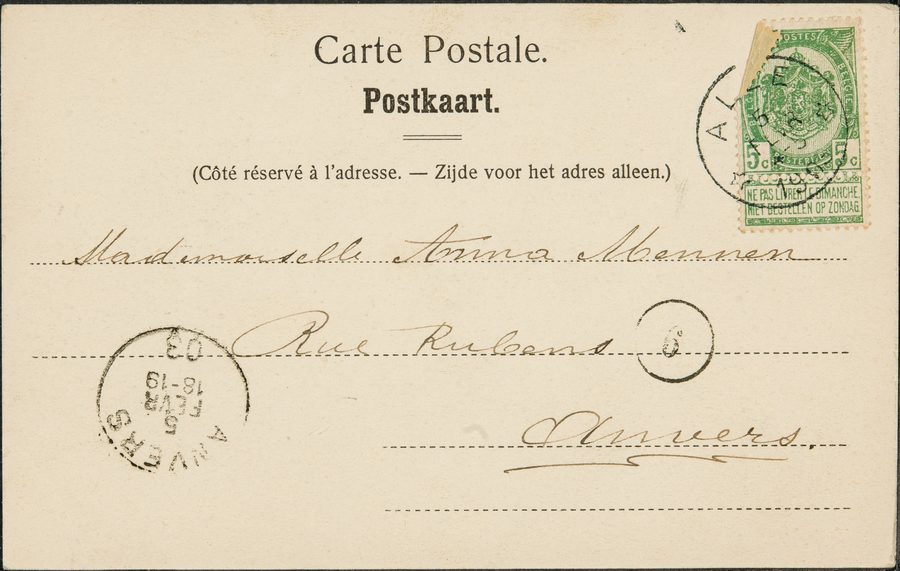 Carte Postale.
Postkaart.
(Côté réservé à l'adresse. — Zijde voor het adres alleen.)
POSTES
BELGIQUE
5c 5c
NE PAS LIVRER LE DIMANCHE.
NIET BESTELLEN OP ZONDAG.
Mademoiselle Anna Mennen
Rue Rubens
6
Anvers.
ANVERS
5
18-19
03